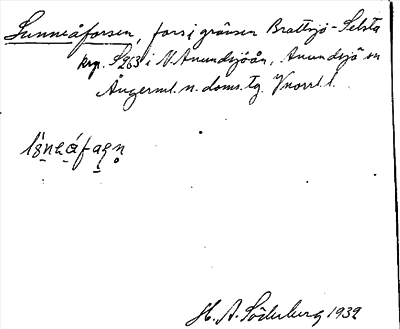 Sunneåforsen, fors i gränsen Brattsjö - Selsta
krp. S263 i N. Anundsjöån, Anundsjö sn
Ångerml. n. doms. tg. Vnorrl. l.
H. A. Söderberg 1932